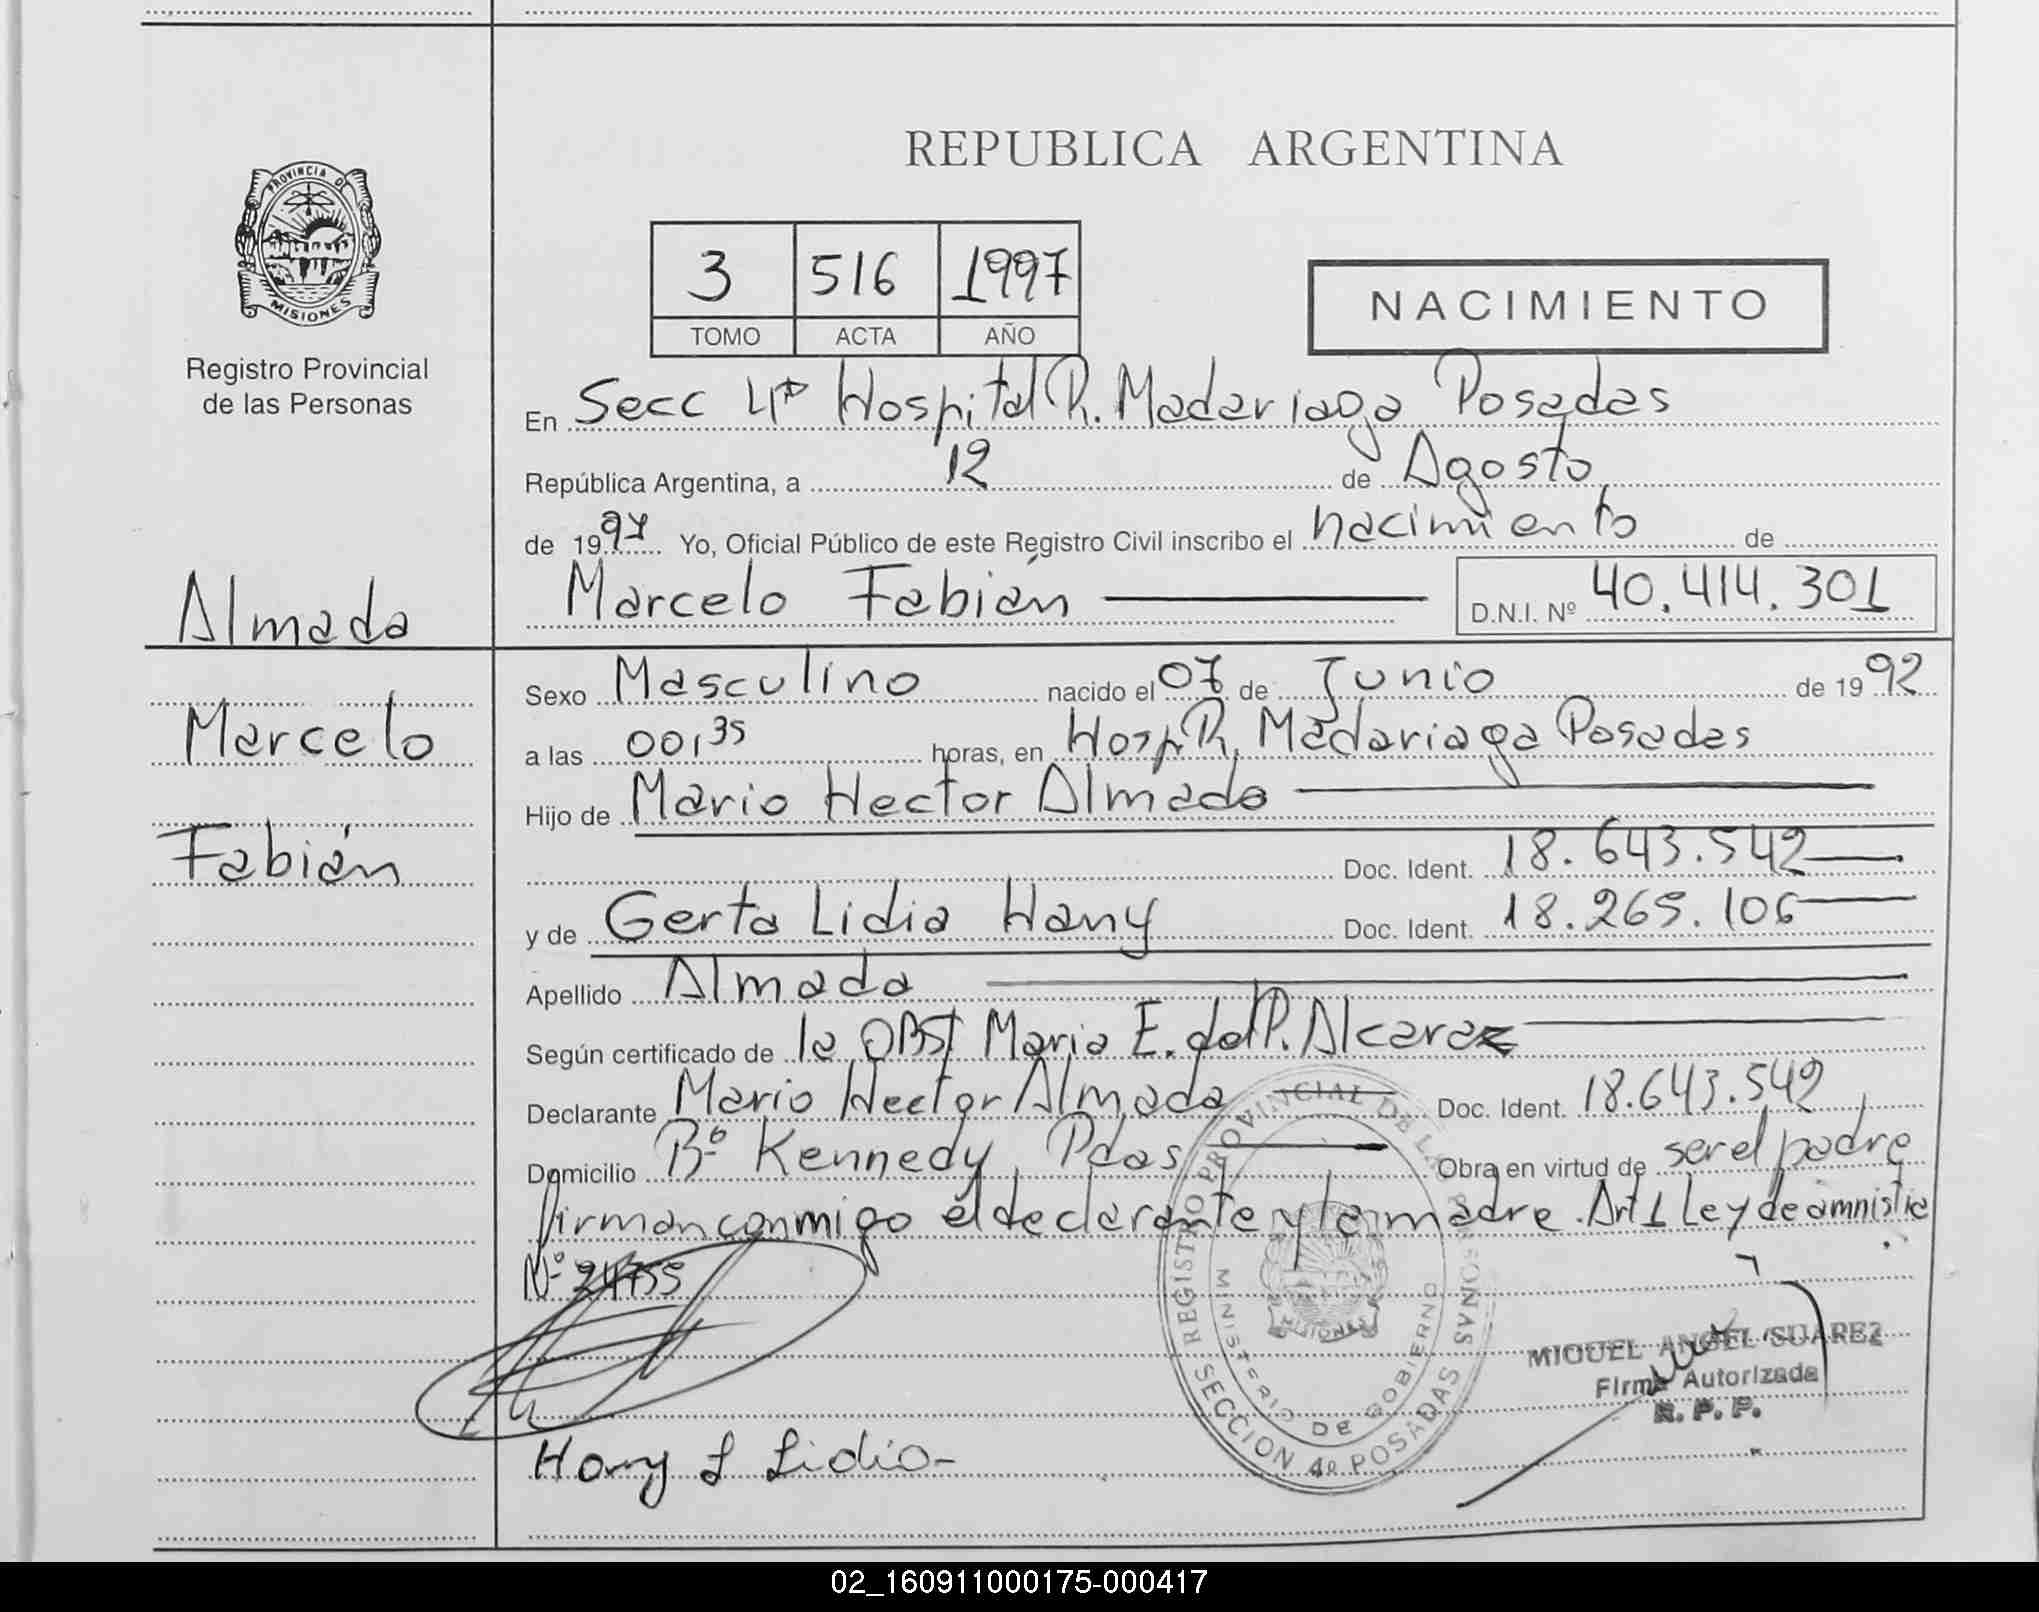 REPUBLICA ARGENTINA
PROVINCIA DE
MISIONES
Registro Provincial
de las Personas
3 516 1997
TOMO ACTA AÑO
NACIMIENTO
En Secc 4ta Hospital R. Madariaga Posadas
República Argentina, a 12 de Agosto
de 1997 Yo, Oficial Público de este Registro Civil inscribo el nacimiento de
Marcelo Fabián D.N.I. Nº 40.414.301
Almada
Marcelo
Fabián
Sexo Masculino nacido el 07 de Junio de 1992
a las 00,35 horas, en Hosp R. Madariaga Posadas
Hijo de Mario Hector Almada
Doc. Ident. 18.643.542
y de Gerta Lidia Hany Doc. Ident. 18.265.106
Apellido Almada
Según certificado de la OBST Maria E. del P. Alcaraz
Declarante Mario Hector Almada Doc. Ident. 18.643.542
Domicilio Bº Kennedy, Pdas Obra en virtud de ser el padre
firman conmigo el declarante y la madre. Art 1 Ley de amnistia
Nº 24755
REGISTRO PROVINCIAL DE LAS PERSONAS
MINISTERIO DE GOBIERNO
MISIONES
SECCION 4º POSADAS
MIGUEL ANGEL SUAREZ
Firma Autorizada
R. P. P.
Hany L Lidia
02_160911000175-000417